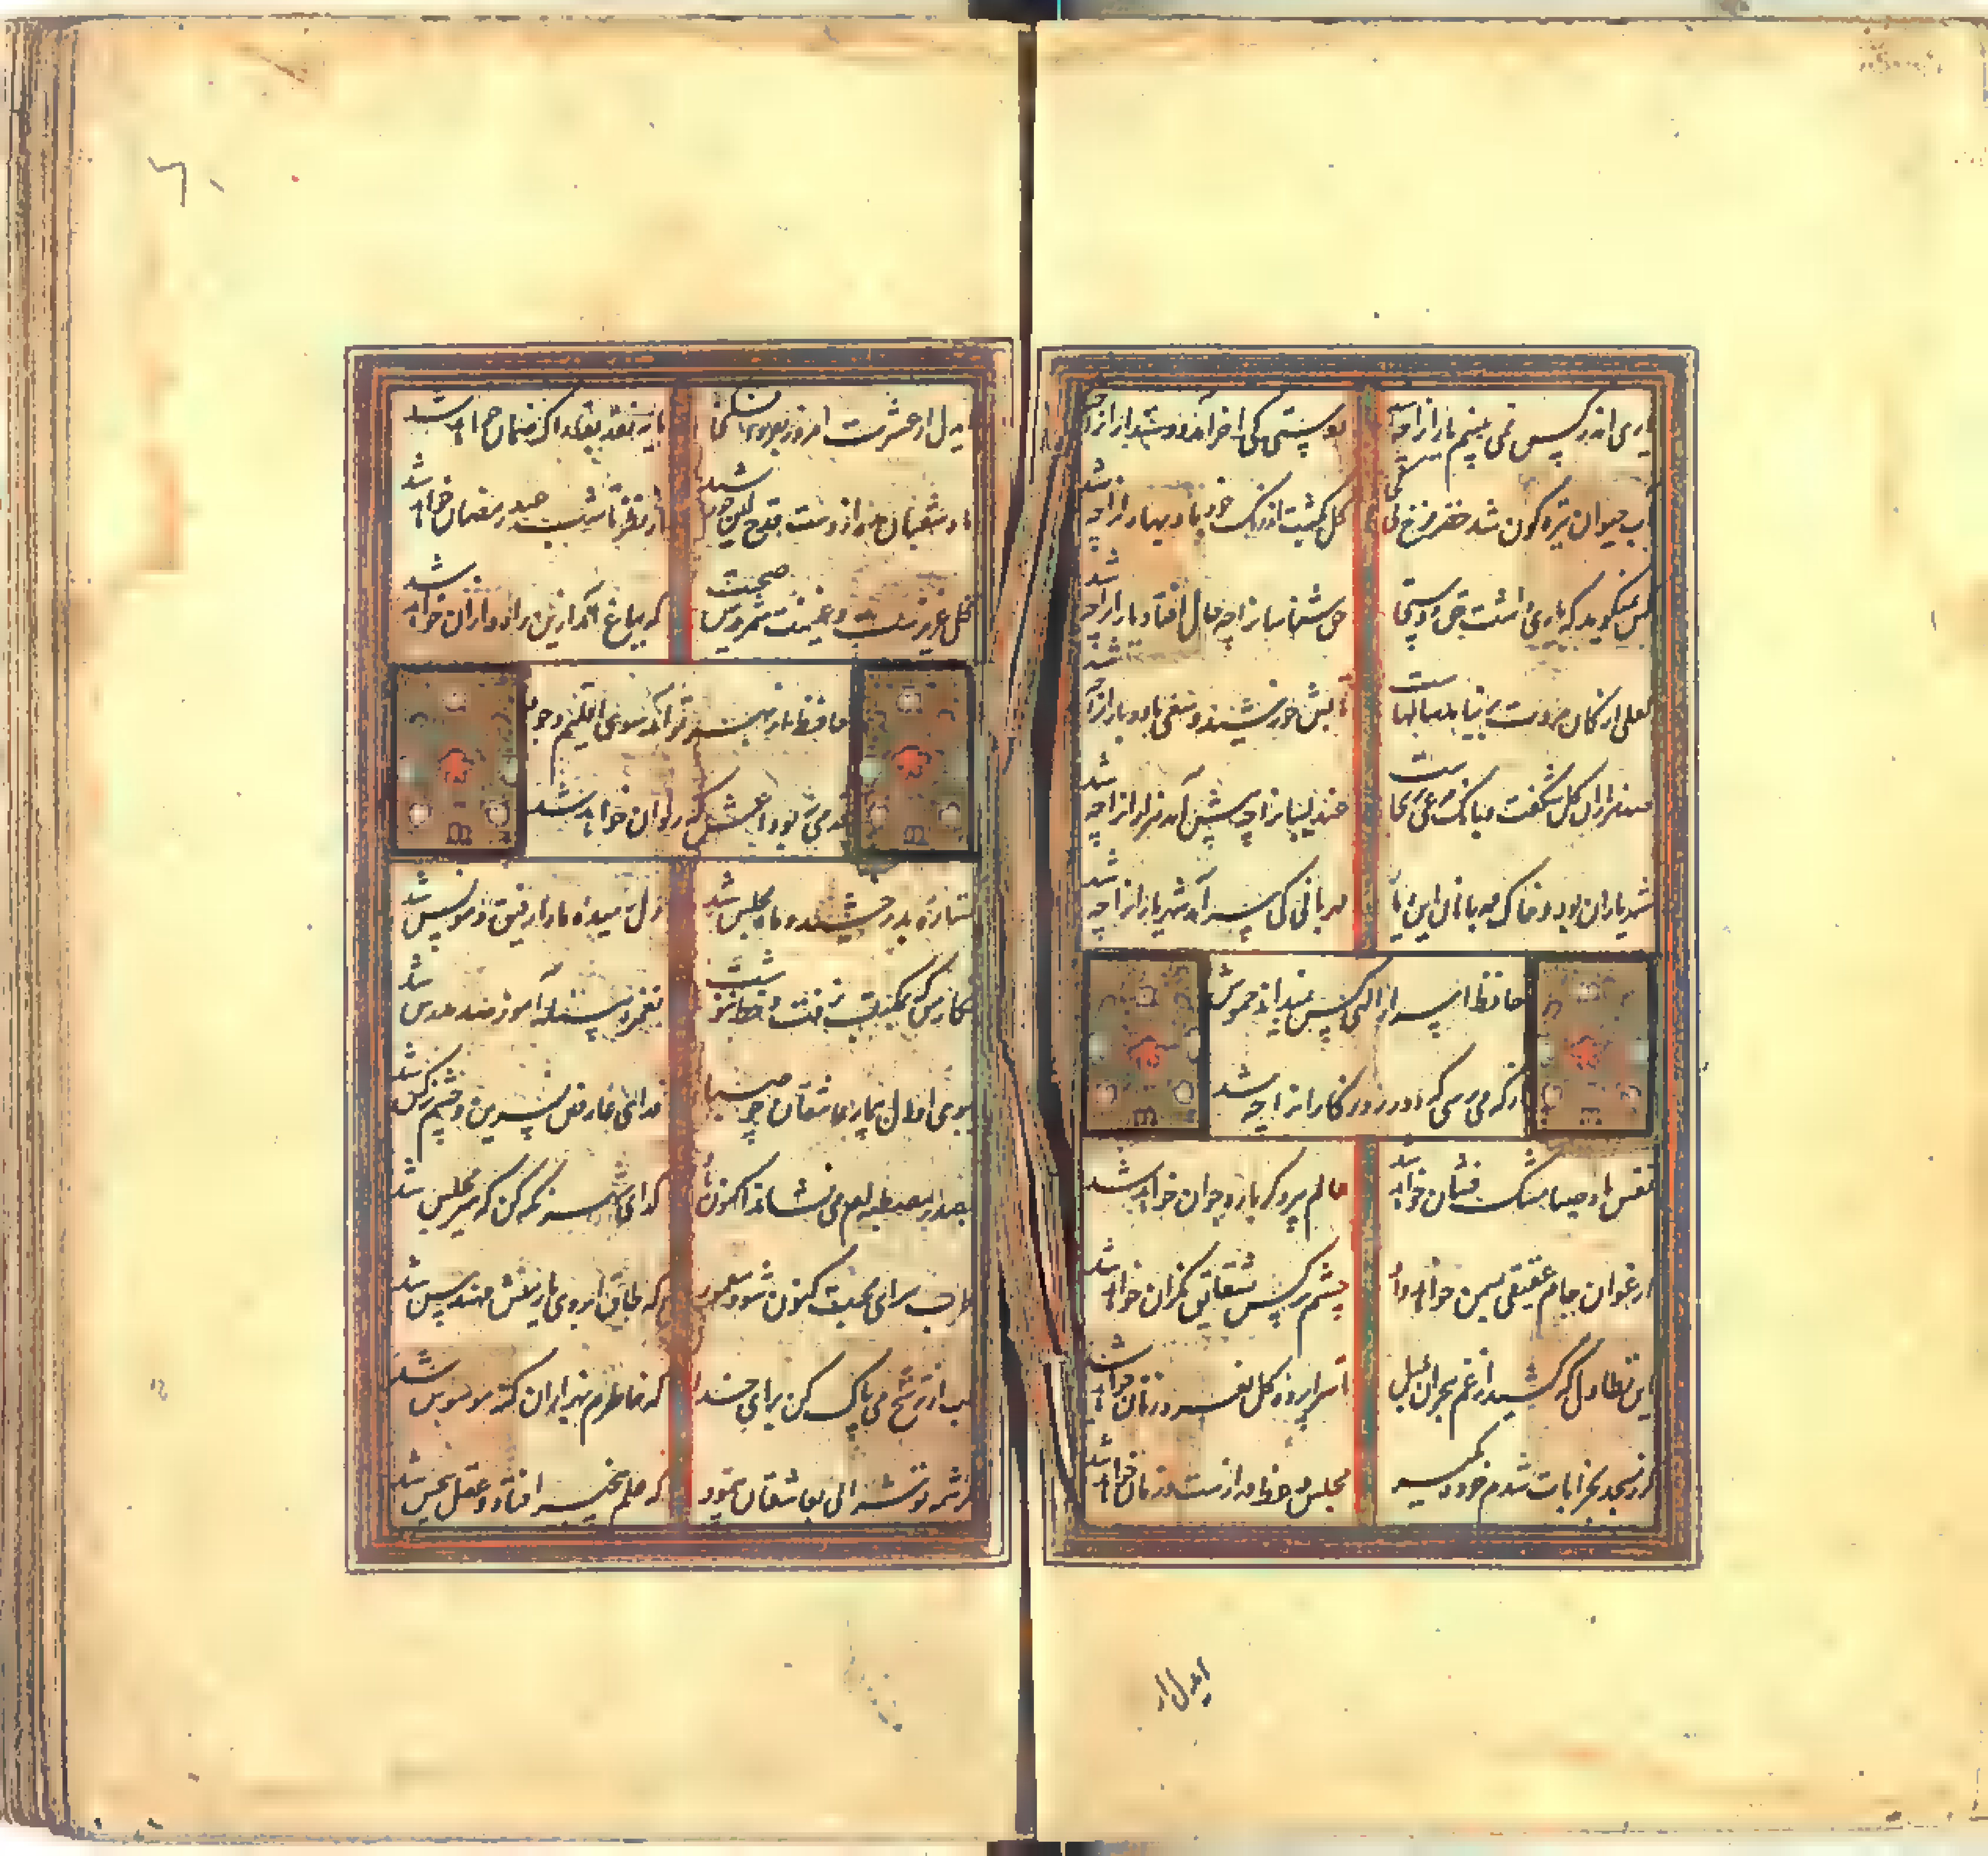 یاری اندر کس نمی بینم یاران را چه شد
دوستی کی آخر آمد دوستداران را چه شد
آب حیوان تیره گون شد خضر فرخ پی کجاست
گل گشت از رنگ خود باد بهاران را چه شد
کس نمیگوید که یاری داشت حق دوستی
حق شناسان را چه حال افتاد یاران را چه شد
لعلی از کان مروت برنیامد سالهاست
تابش خورشید و سعی باد و باران را چه شد
صد هزاران گل شکفت و بانگ مرغی برنخاست
عندلیبان را چه پیش آمد هزاران را چه شد
شهر یاران بود و خاک مهربانان این دیار
مهربانی کی سر آمد شهریاران را چه شد
حافظ اسرار الهی کس نمیداند خموش
از که می پرسی که دور روزگاران را چه شد
نفس باد صبا مشک فشان خواهد شد
عالم پیر دگر باره جوان خواهد شد
ارغوان جام عقیقی بسمن خواهد داد
چشم نرگس بشقایق نگران خواهد شد
این تطاول که کشید از غم هجران بلبل
تا سراپرده گل نعره زنان خواهد شد
گر ز مسجد بخرابات شدم خرده مگیر
مجلس وعظ دراز است و زمان خواهد شد
ایدل ار
ایدل ار عشرت امروز بفردا فکنی
مایه نقد بقا را که ضمان خواهد شد
ماه شعبان منه از دست قدح کین خورشید
از نظر تا شب عید رمضان خواهد شد
گل عزیزست غنیمت شمریدش صحبت
که بباغ آمد ازین راه و از آن خواهد شد
حافظ از بهر تو آمد سوی اقلیم وجود
قدمی نه بوداعش که روان خواهد شد
ستاره بدرخشید و ماه مجلس شد
دل رمیده ما را رفیق و مونس شد
نگار من که بمکتب نرفت و خط ننوشت
بغمزه مسئله آموز صد مدرس شد
ببوی او دل بیمار عاشقان چو صبا
فدای عارض نسرین و چشم نرگس شد
بصدر مصطبه ام می نشاند اکنون یار
گدای شهر نگه کن که میر مجلس شد
طرب سرای محبت کنون شود معمور
که طاق ابروی یار منش مهندس شد
لب از ترشح می پاک کن برای خدا
که خاطرم بهزاران گنه موسوس شد
کرشمه تو شرابی بعاشقان پیمود
که علم بیخبر افتاد و عقل بیحس شد